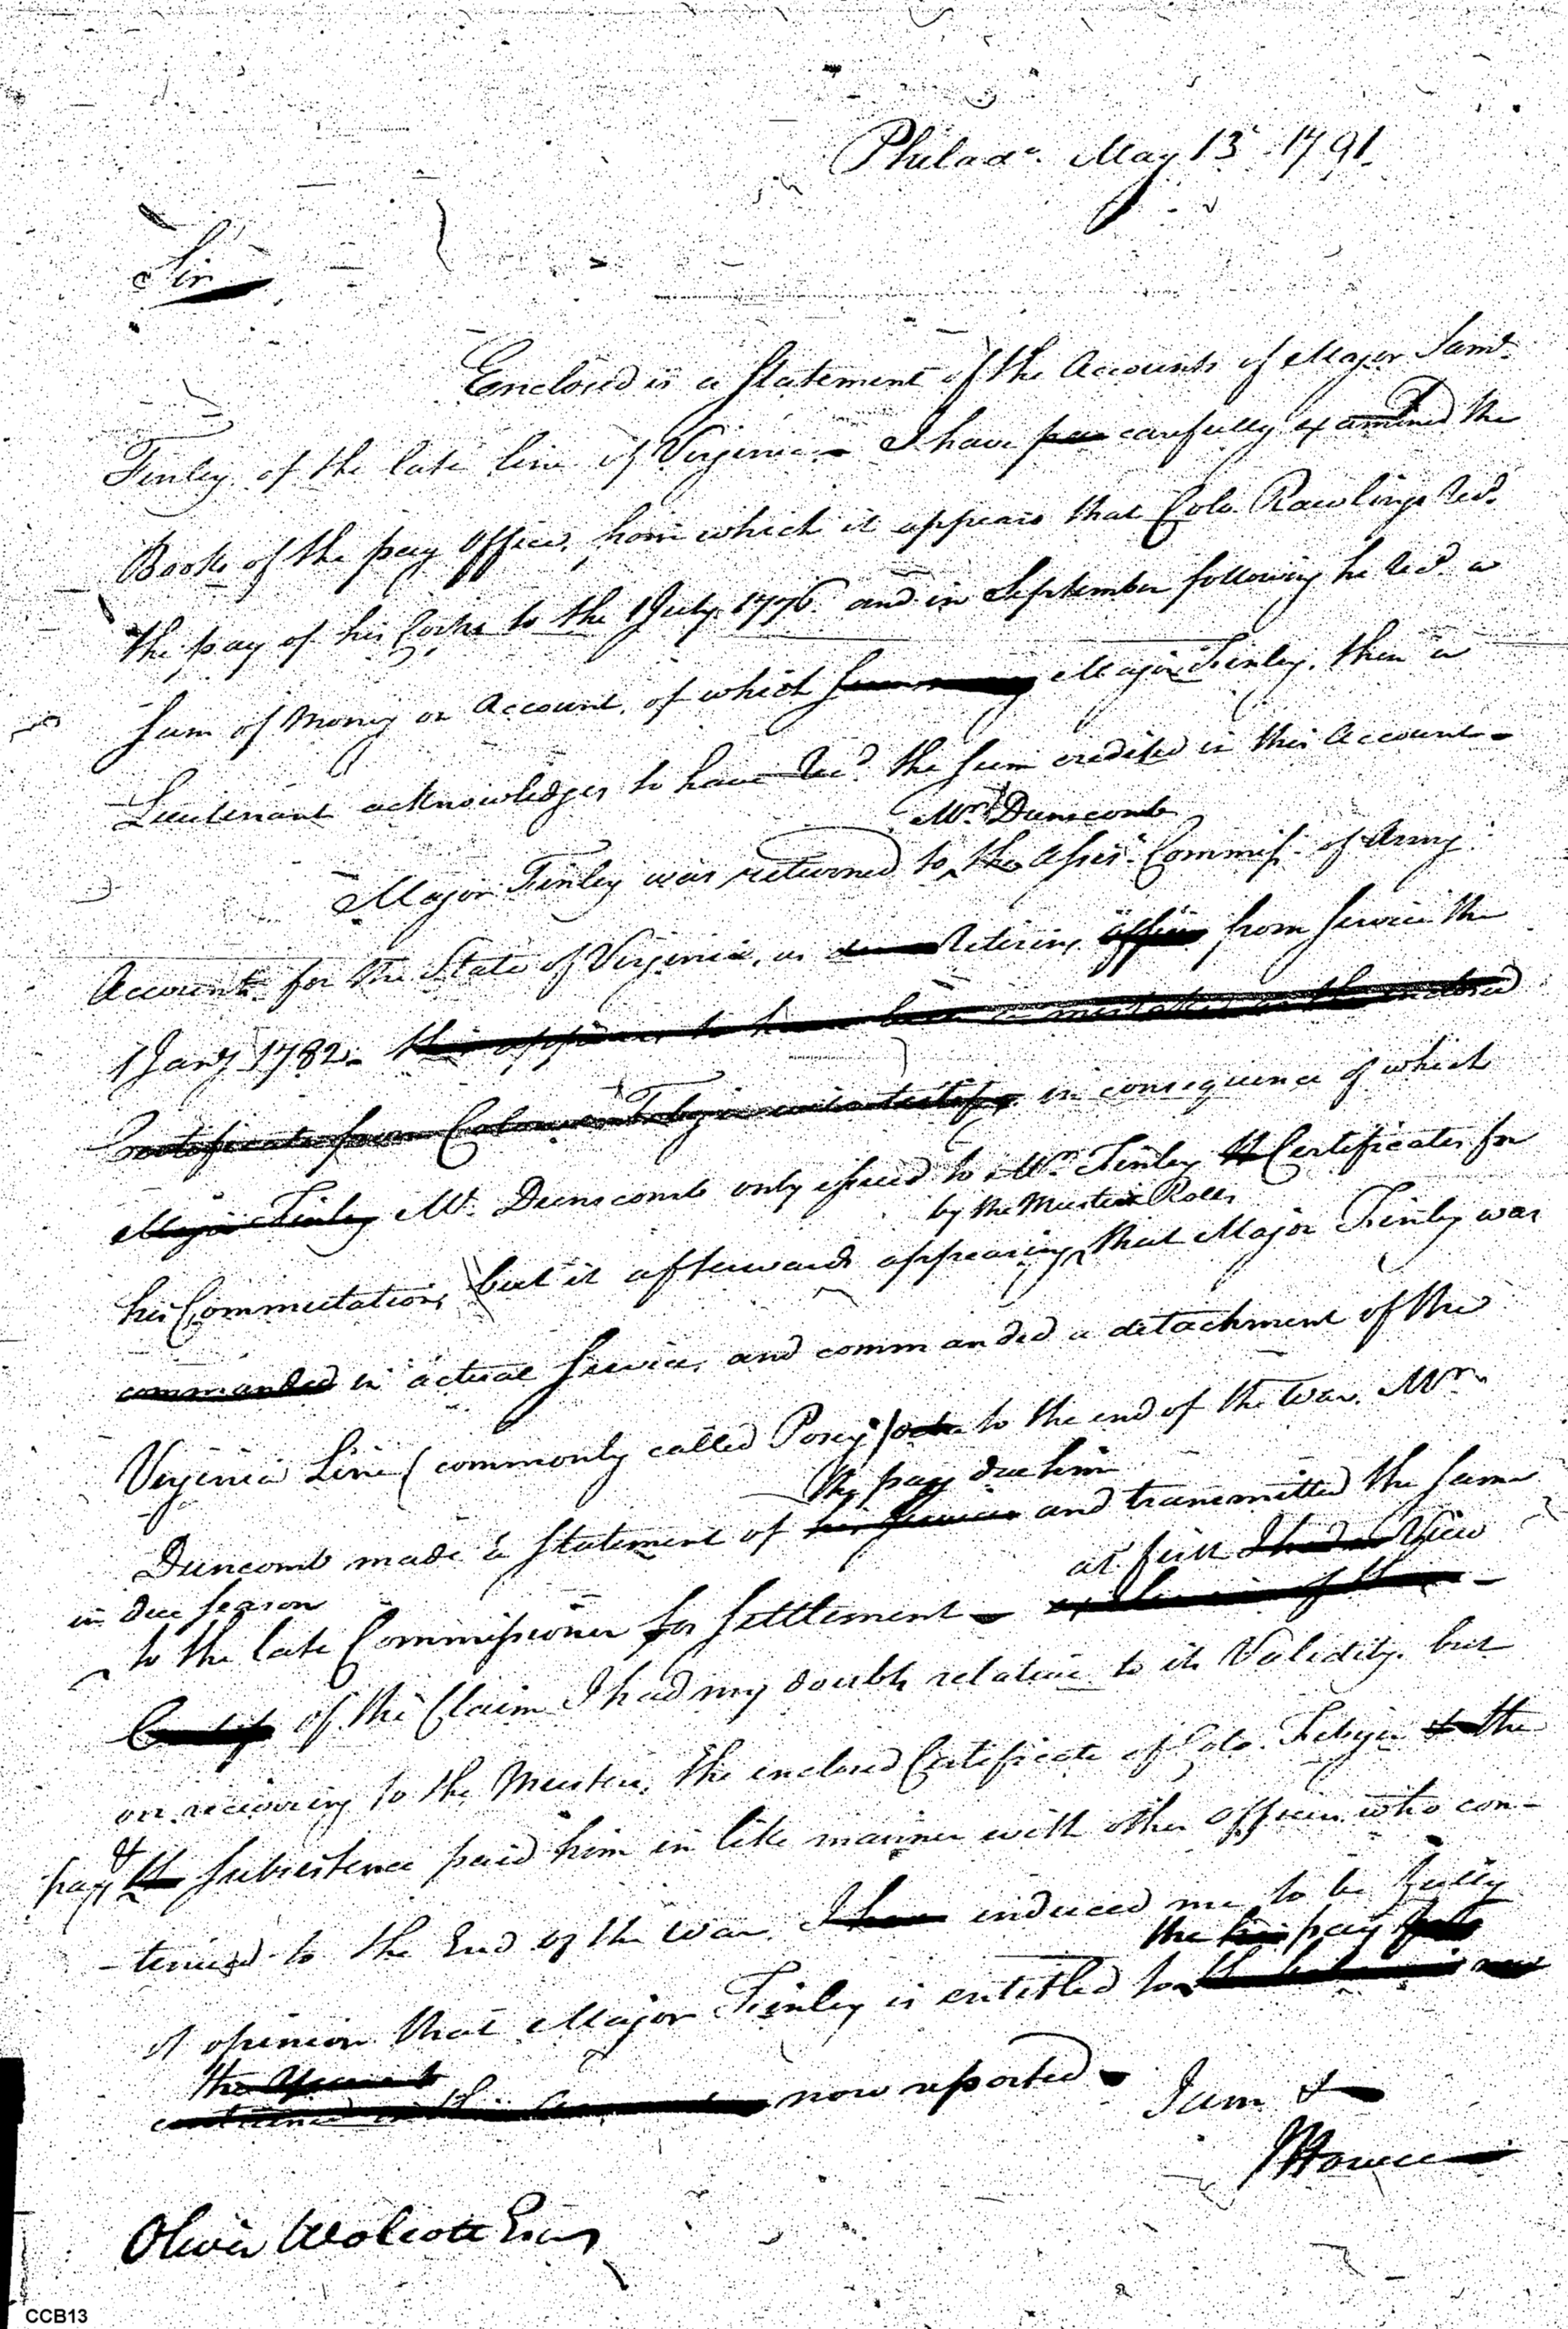 Philada. May 13 1791.
Sir
Enclosed is a Statement of the Accounts of Major Saml.
Finley of the late line of Virginia – I have carefully examined the
Books of the pay Office, from which it appears that Colo. Rawlings Recd.
the pay of his Corps to the 1 July 1776. and in September following he Recd. a
Sum of Money on Account, of which Major Finley, then a
Lieutenant acknowledges to have Recd. the sum credited in this Account –
Mr. Dunscomb
Major Finley was returned to the Assist. Commissr. of Army
Accounts for the State of Virginia, as Retiring from service the
1 Jany 1782 – this appears to have been a mistake as the enclosed
Certificate from Colonel Febiger in consequence of which
Major Finley Mr. Dunscomb only issued to Mr. Finley Certificates for
by the Muster Rolls
his Commutation, but it afterwards appearing that Major Finley was
commanded in actual Service, and commanded a detachment of the
Virginia Line (commonly called Posey's) to the end of the War. Mr.
the pay due him
Dunscomb made a Statement of his Services and transmitted the same
in due season
at first I had a View
to the late Commissioner for Settlement –
of the Claim I had my doubts relative to its Validity, but
on recurring to the Musters, the enclosed Certificate of Colo. Febiger & the
pay & subsistence paid him in like manner with other Officers who con-
-tinued to the End of the War. I have induced me to be fully
the his pay
of opinion that Major Finley is entitled to
the Amount
contained in this now reported –
I am &
JHowell
Oliver Wolcott Esqr
CCB13